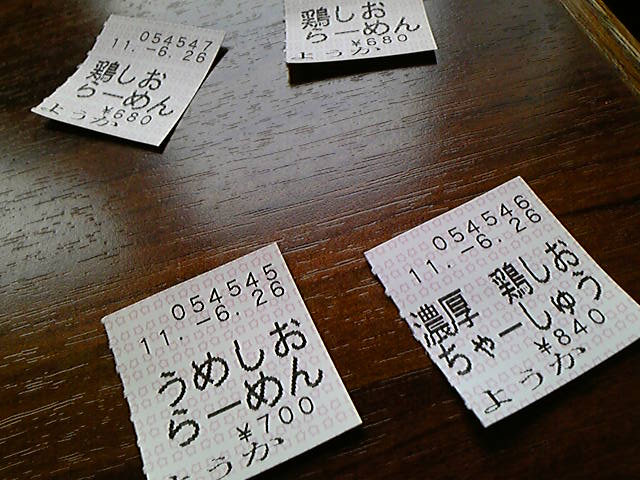 054547
11.-6.26
鶏しお
らーめん
¥680
ようか
鶏しお
らーめん
¥680
ようか
054545
11.-6.26
うめしお
らーめん
¥700
ようか
054546
11.-6.26
濃厚 鶏しお
ちゃーしゅう
¥840
ようか